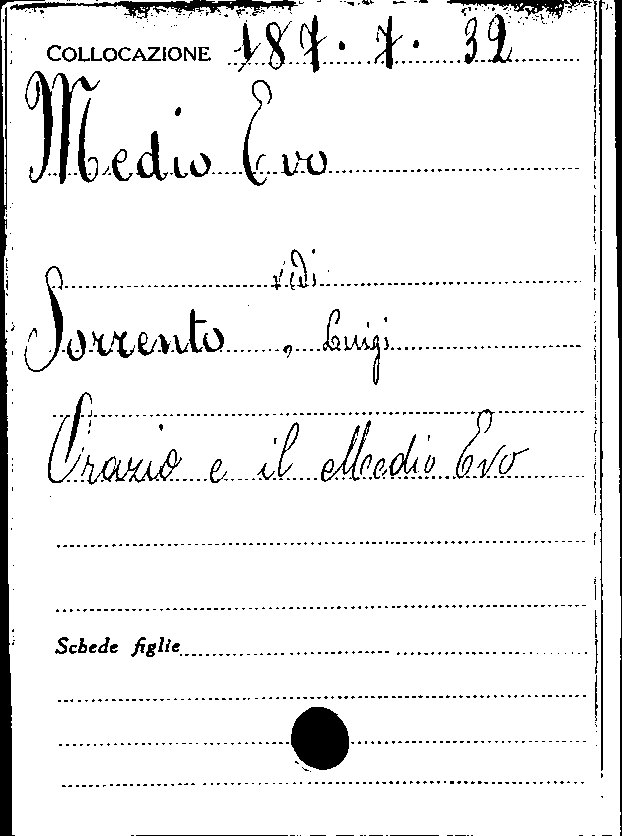 COLLOCAZIONE 187. 7. 32
Medio Evo
vedi
Sorrento, Luigi
Orazio e il Medio Evo
Schede figlie